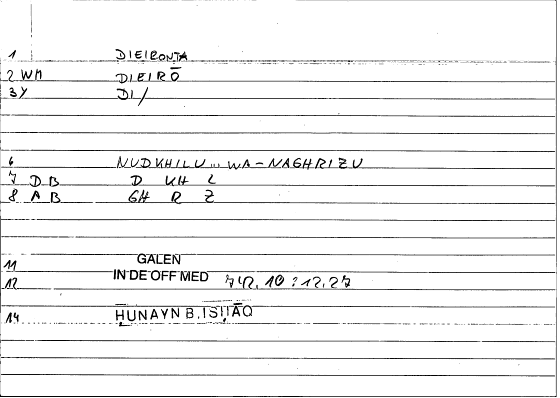 1 DIEIRONTA
2 WM DIEIRŌ
3 Y DI/
6 NUDKHILU ... WA-NAGHRIZU
7 D B D KH L
8 A B GH R Z
11 GALEN
12 IN DE OFF MED 742,10 : 12,27
14 ḤUNAYN B. ISḤĀQ